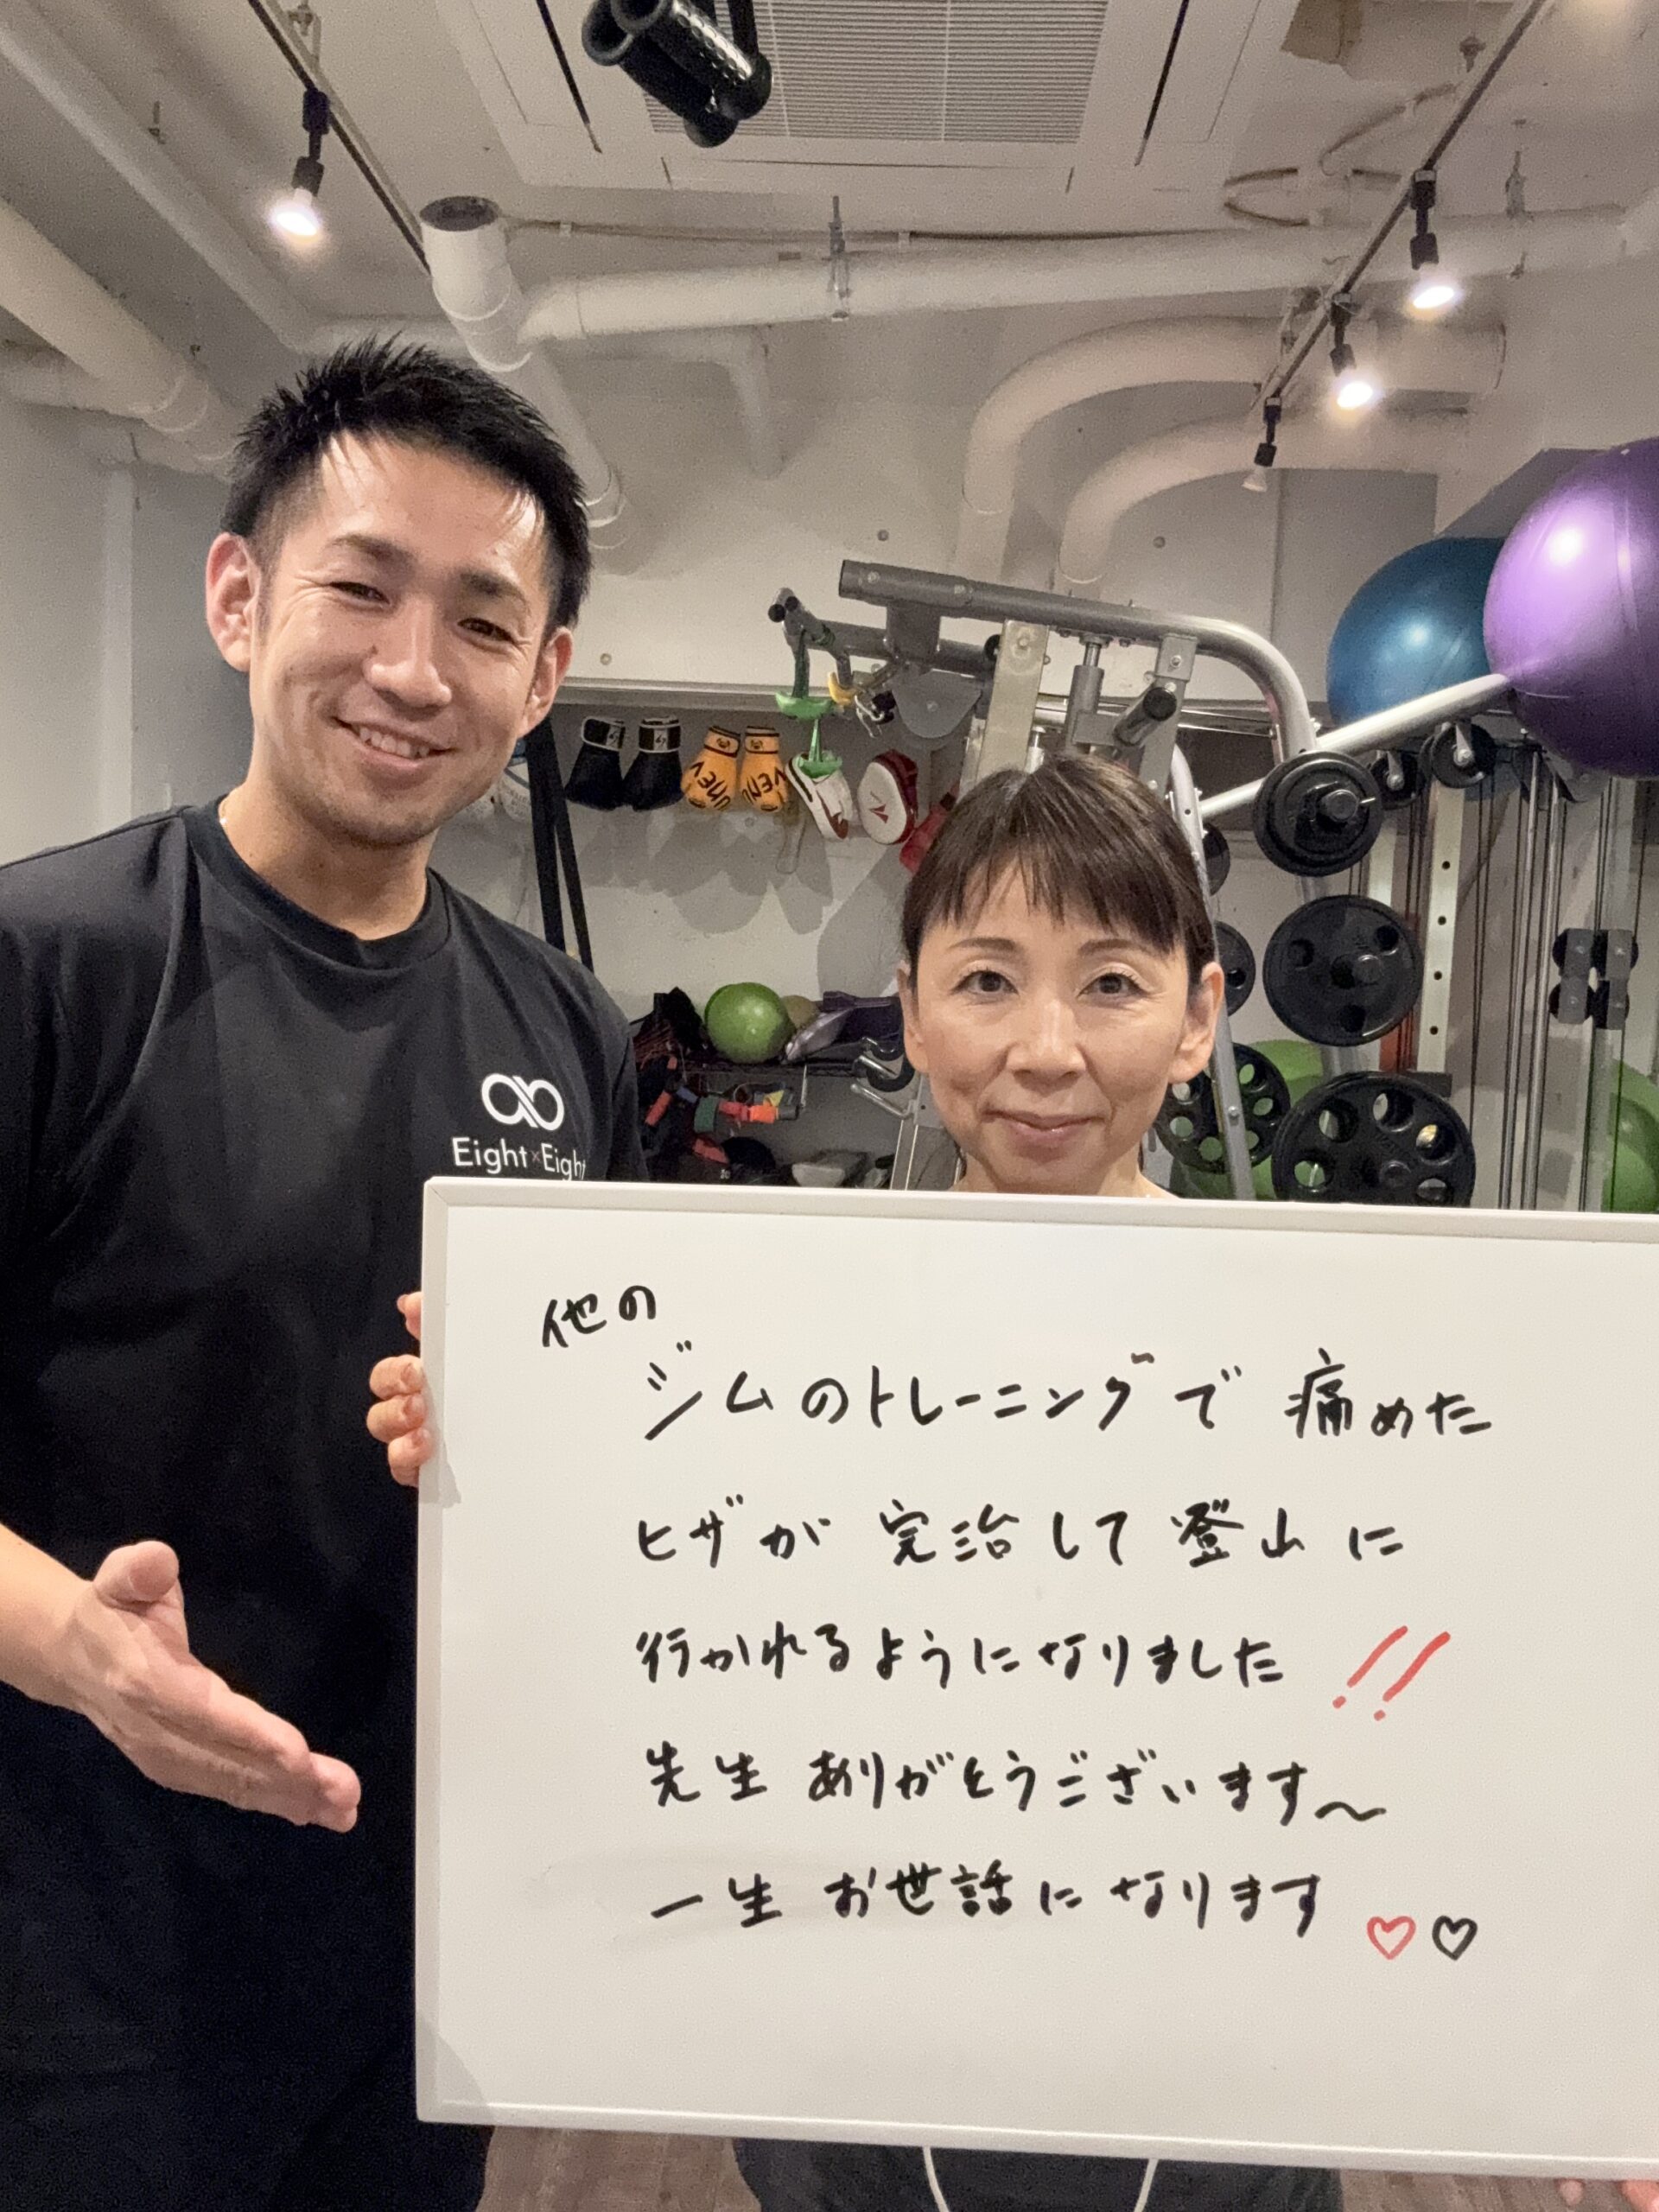 Eight×Eight
VENU
他の
ジムのトレーニングで 痛めた
ヒザが 完治して 登山に
行かれるようになりました!!
先生 ありがとうございます〜
一生 お世話になります♡♡